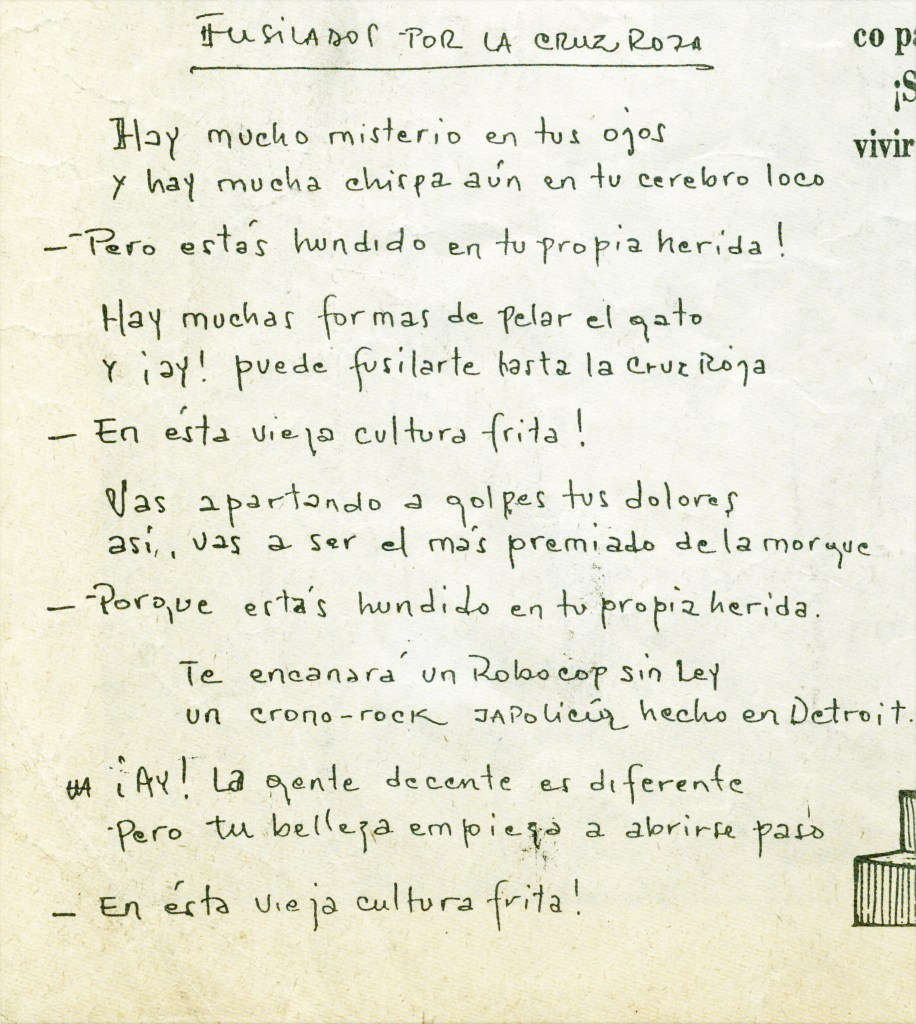 FUSILADOS POR LA CRUZ ROJA
co pa
¡S
vivir
Hay mucho misterio en tus ojos
y hay mucha chispa aún en tu cerebro loco
— Pero estás hundido en tu propia herida!
Hay muchas formas de pelar el gato
y ¡ay! puede fusilarte hasta la Cruz Roja
— En ésta vieja cultura frita!
Vas apartando a golpes tus dolores
así, vas a ser el más premiado de la morgue
— Porque estás hundido en tu propia herida.
Te encanará un Robocop sin Ley
un crono-rock JAPolicía hecho en Detroit.
¡Ay! La gente decente es diferente
Pero tu belleza empieza a abrirse paso
— En ésta vieja cultura frita!